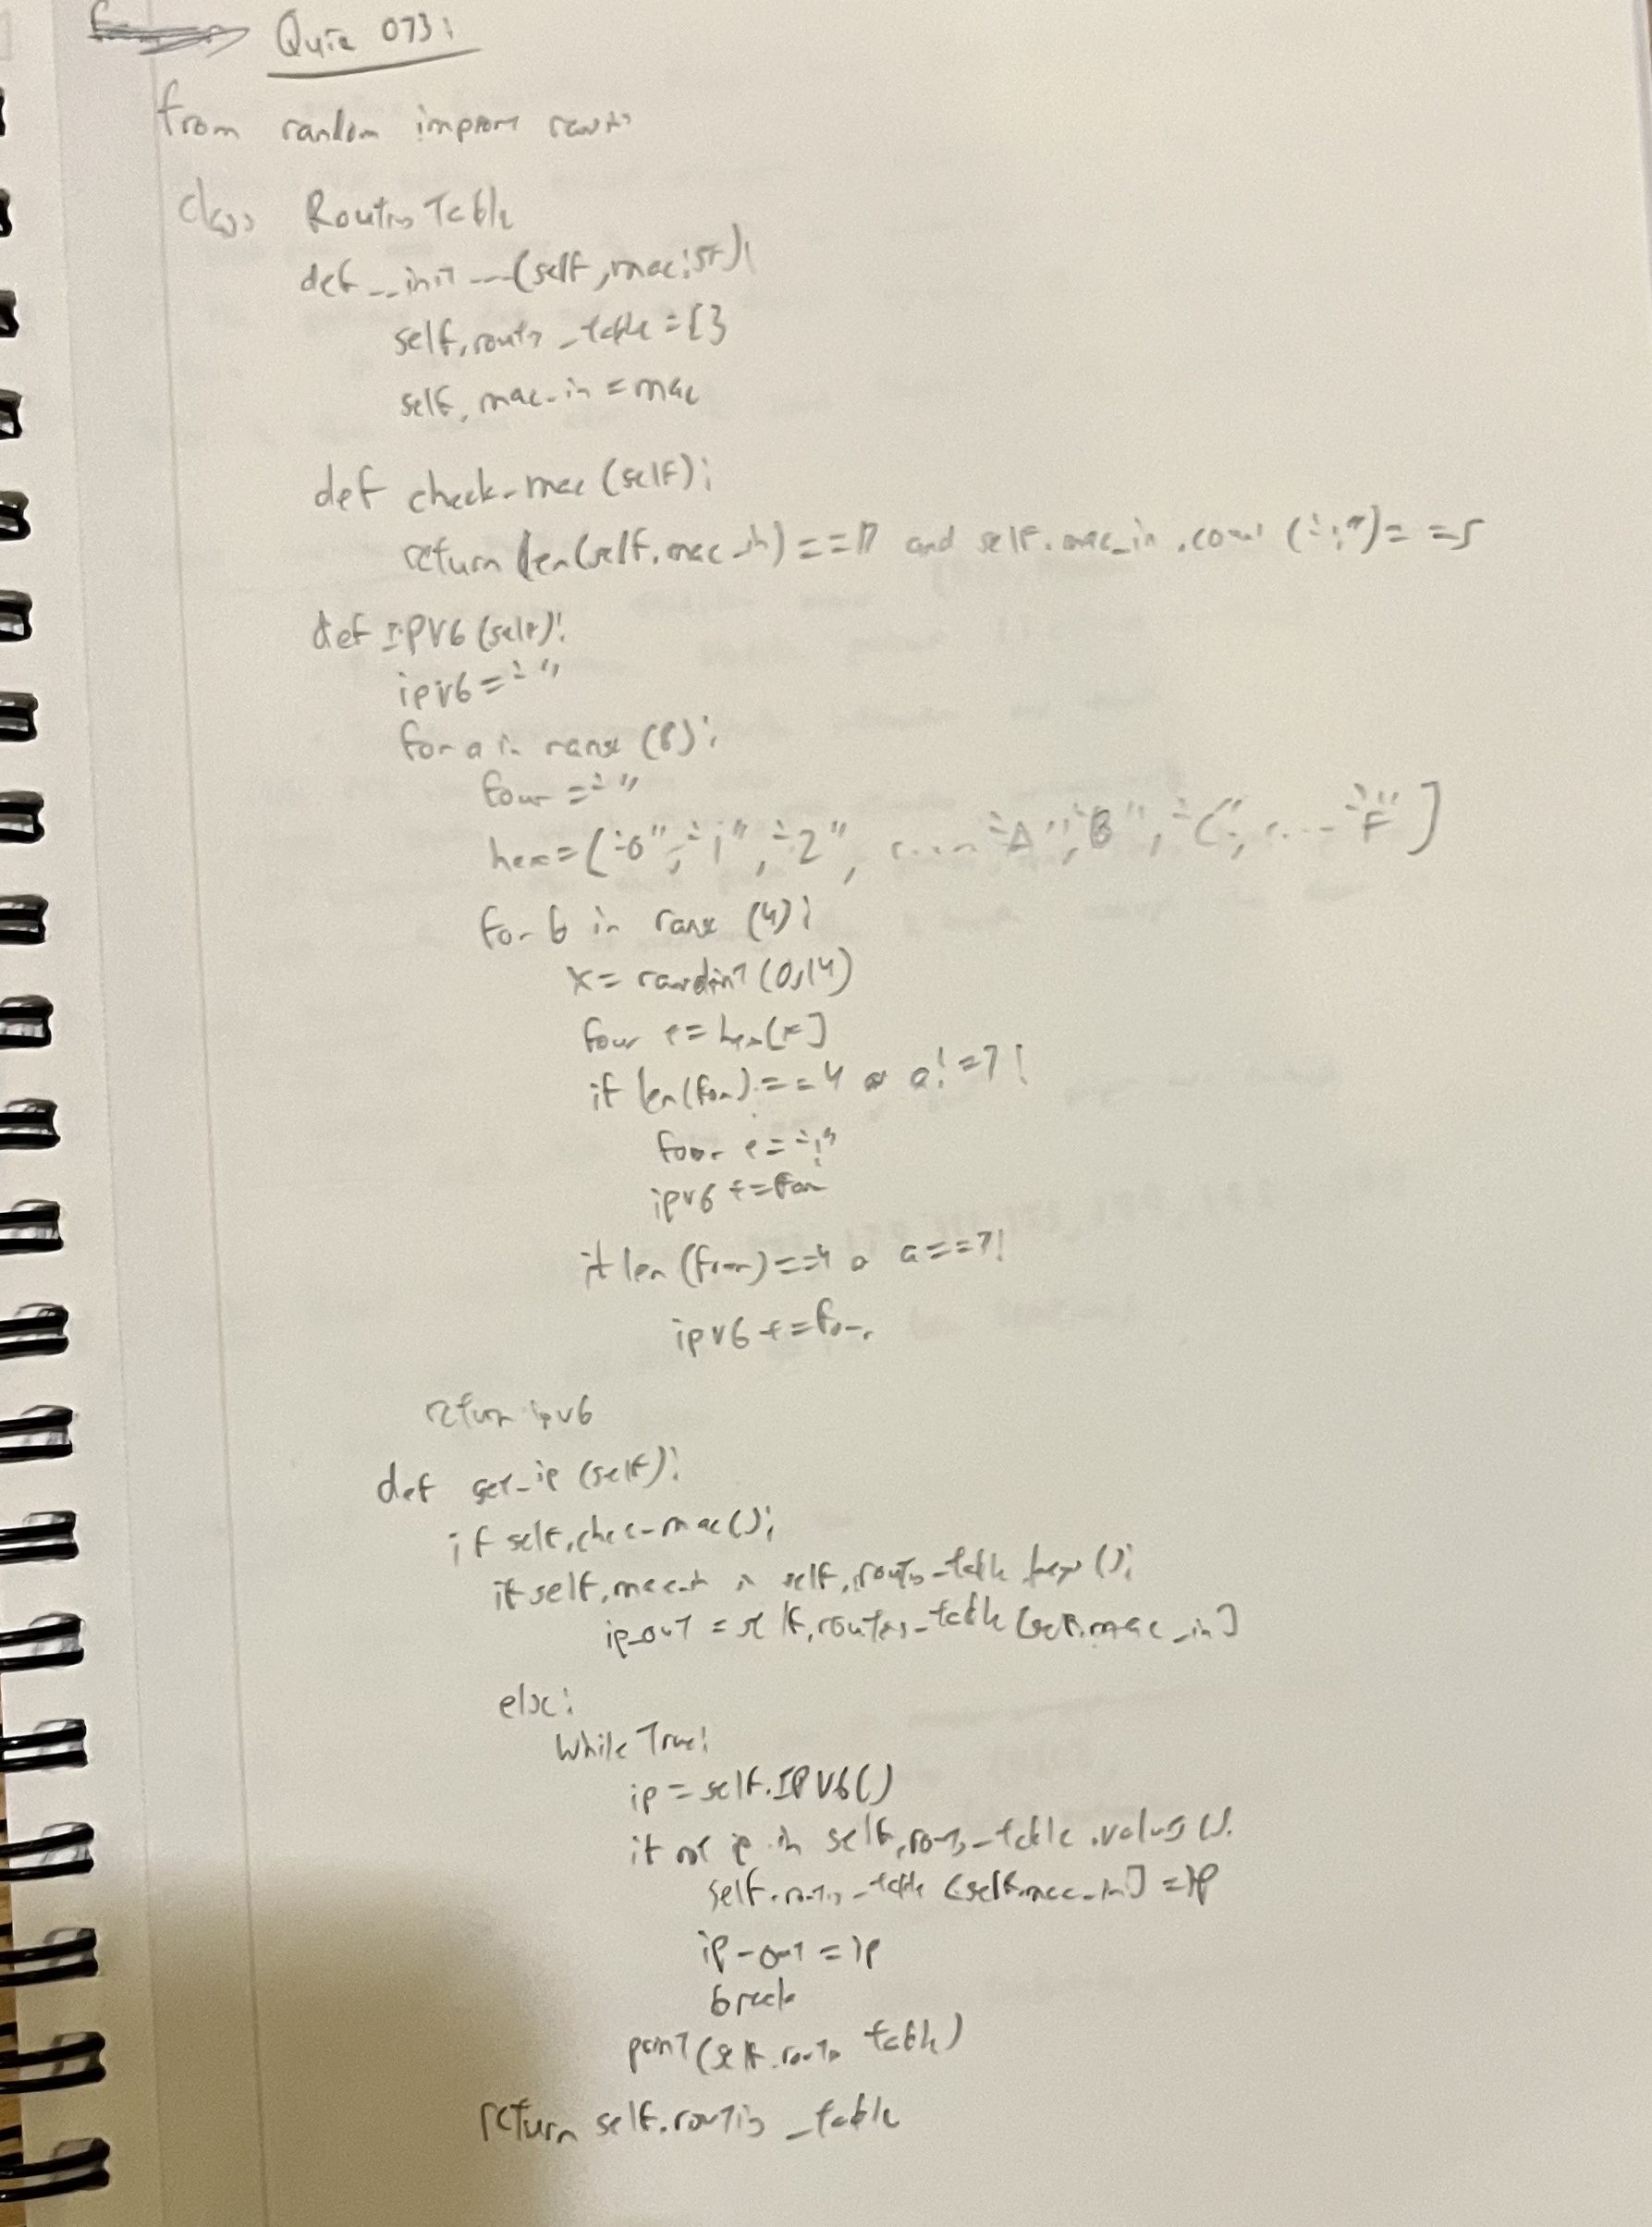 Quiz 073:
from random import randint
class Routing Table
def __init__(self, mac: str):
self.routing_table = {}
self.mac_in = mac
def check_mac (self):
return len(self.mac_in) == 17 and self.mac_in.count (":") == 5
def IPV6 (self):
ipv6 = ""
for a in range (8):
four = ""
hex = ["0", "1", "2", ..... "A", "B", "C", .... "F"]
for b in range (4):
x = randint (0,14)
four += hex[x]
if len(four) == 4 or a != 7:
four += ":"
ipv6 += four
if len (four) == 4 or a == 7:
ipv6 += four
return ipv6
def get_ip (self):
if self.chec_mac():
if self.mac_in in self.routing_table keys ():
ip_out = self.routing_table [self.mac_in]
else:
While True:
ip = self.IPV6()
if not ip in self.routing_table.values ():
self.routing_table [self.mac_in] = ip
ip_out = ip
break
print (self.routing table)
return self.routing_table